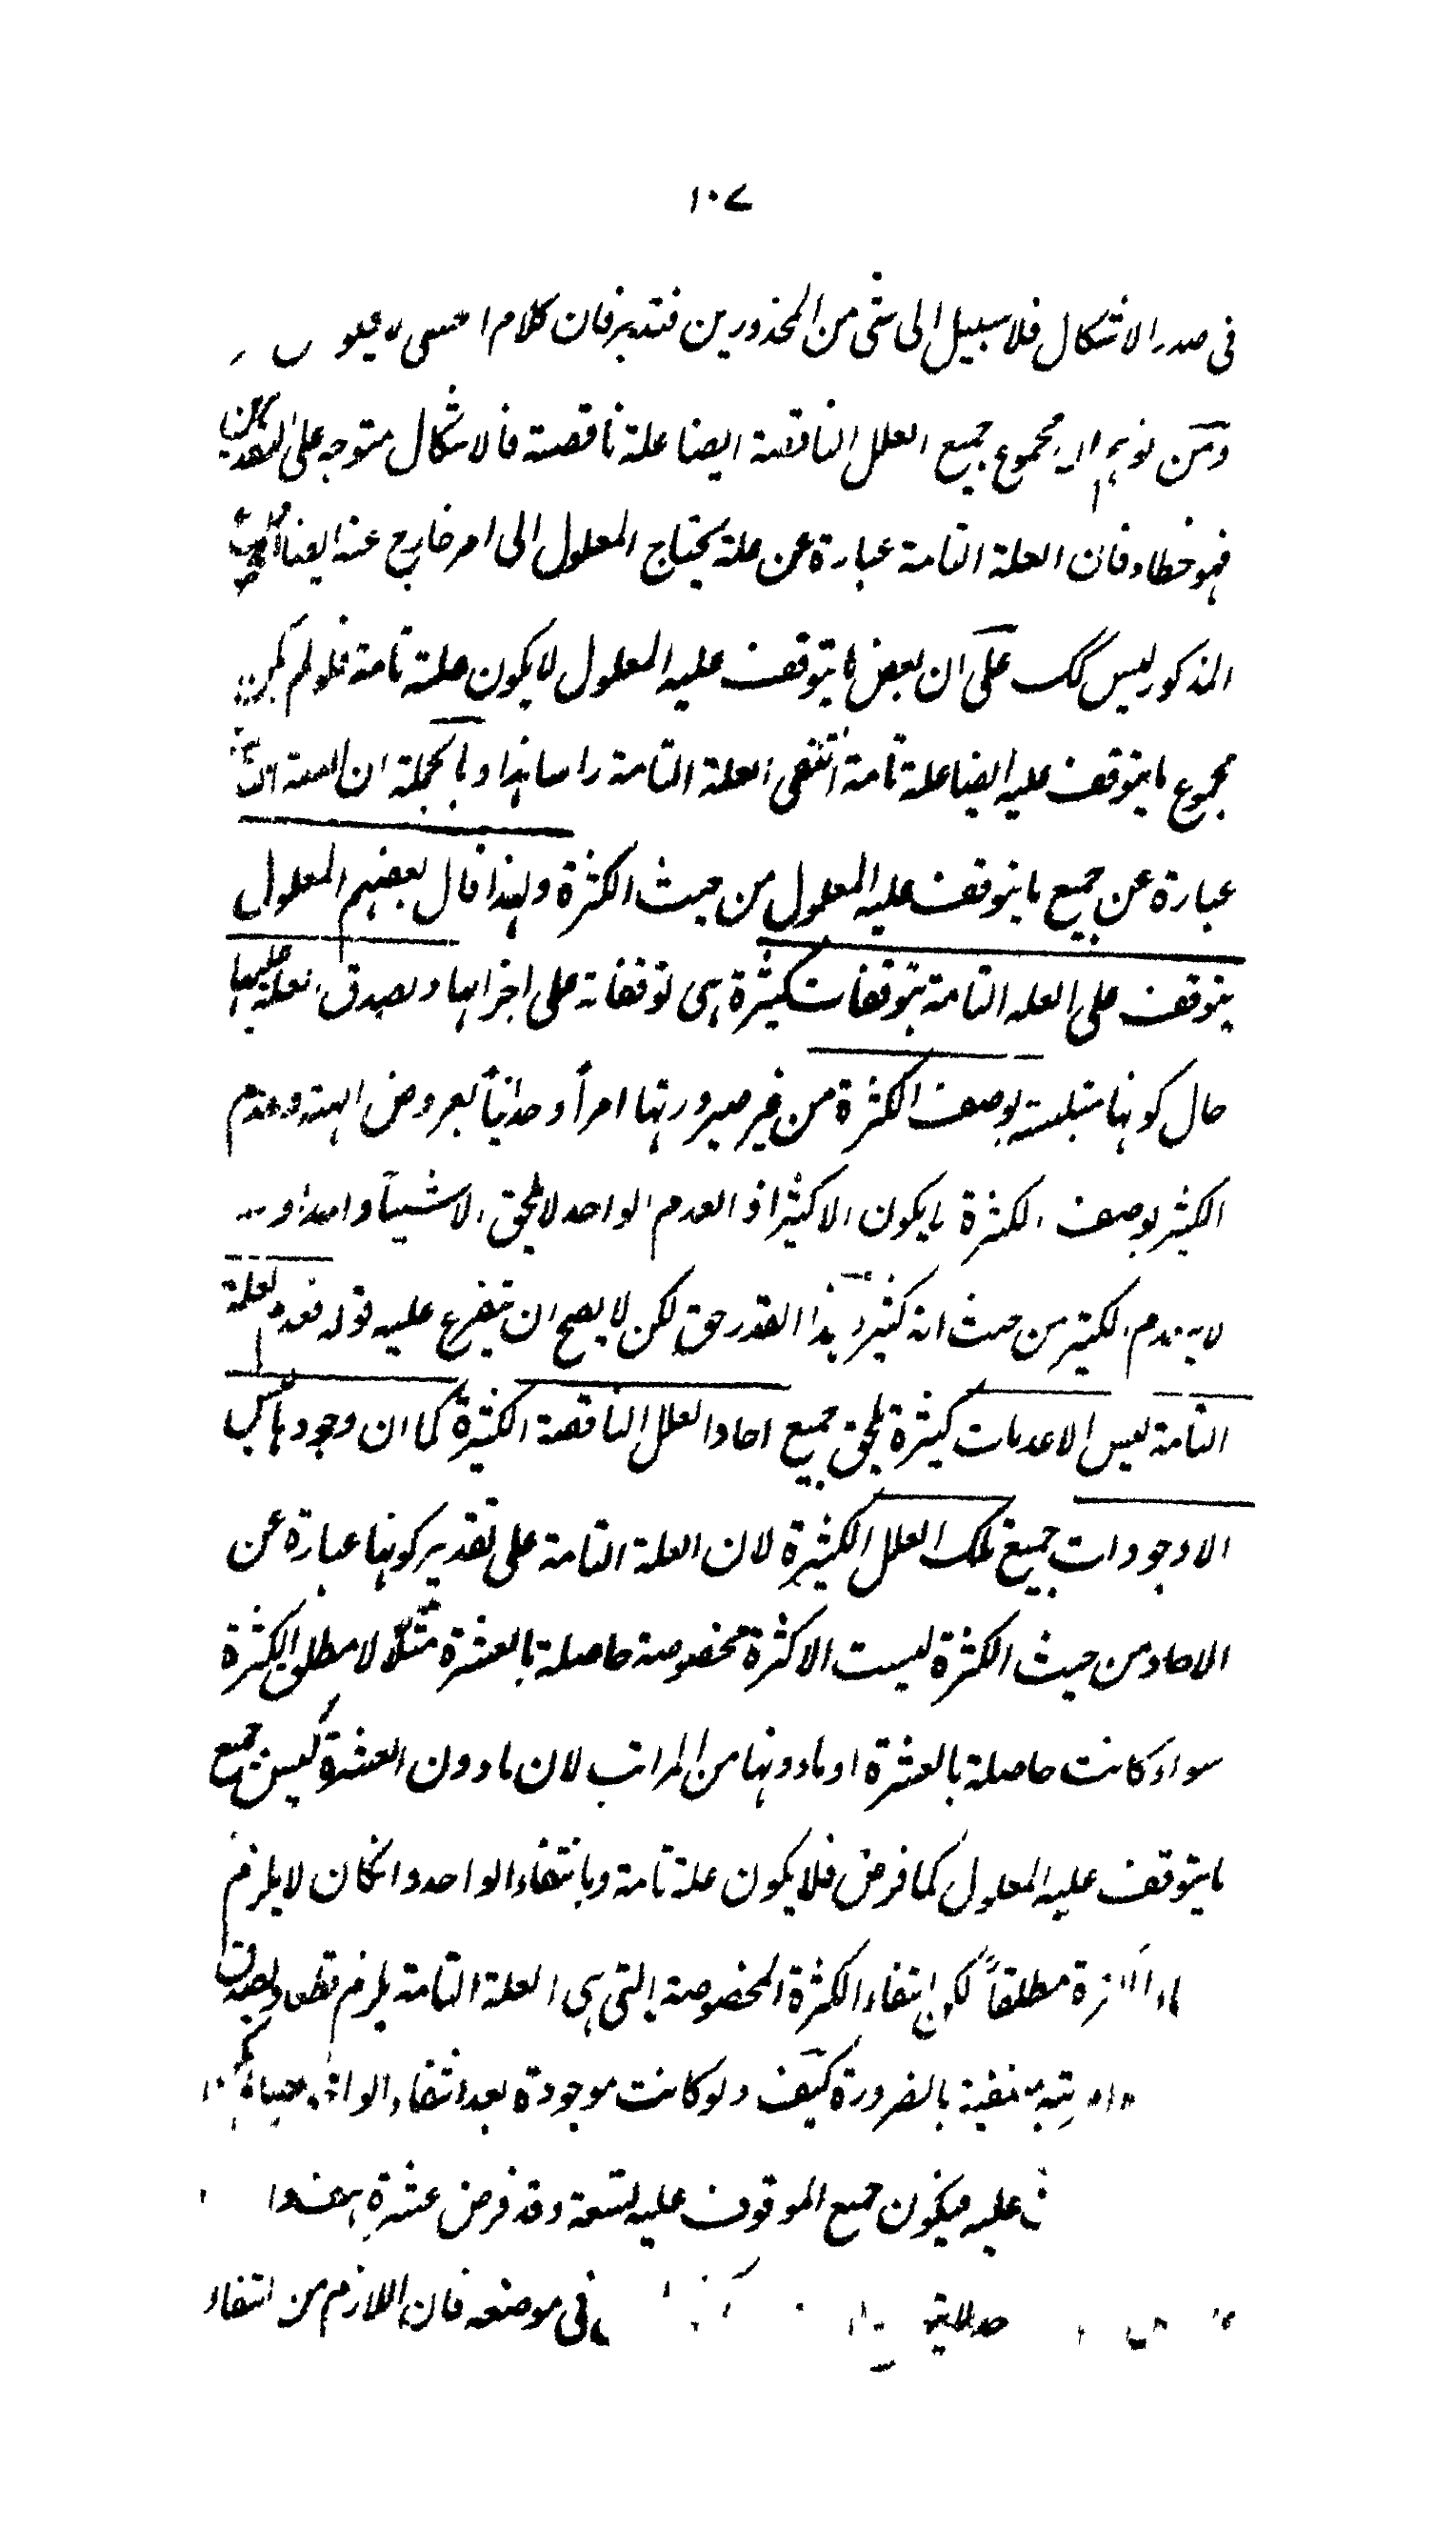 ١٠٧
فى صدر الاشكال فلا سبيل الى شى من المحذورين فتدبر فان كلام
ومن توهم ان مجموع جميع العلل الناقصة ايضا علة ناقصة فالاشكال متوجه على
فهو خطاء فان العلة التامة عبارة عن علة يحتاج المعلول الى امر خارج عنه ايضا
المذكور ليس كك على ان بعض ما يتوقف عليه المعلول لا يكون علة تامة فلو لم يكن
مجموع ما يتوقف عليه ايضا علة تامة انتفى العلة التامة راسا هذا وبالجملة ان العلة
عبارة عن جميع ما يتوقف عليه المعلول من حيث الكثرة ولهذا قال بعضهم المعلول
يتوقف على العلة التامة بتوقفات كثيرة هى توقفاته على اجزائها ويصدق العلة عليها
حال كونها متلبسة بوصف الكثرة من غير صيرورتها امراً وحدانياً بعروض الهيئة وعدم
الكثير بوصف الكثرة لا يكون الا كثيرا اذ العدم الواحد لا يلحق الا شيئاً واحدا و
لا ينعدم الكثير من حيث انه كثير وهذا القدر حق لكن لا يصح ان يتفرع عليه قوله فعدم العلة
التامة ليس الا عدمات كثيرة يلحق جميع احاد العلل الناقصة الكثيرة كما ان وجودها ليس
الا وجودات جميع تلك العلل الكثيرة لان العلة التامة على تقدير كونها عبارة عن
الاحاد من حيث الكثرة ليست الا كثرة مخصوصة حاصلة بالعشرة مثلاً لا مطلق الكثرة
سواء كانت حاصلة بالعشرة او ما دونها من المراتب لان ما دون العشرة ليس جميع
ما يتوقف عليه المعلول كما فرض فلا يكون علة تامة وبانتفاء الواحد وانكان لا يلزم
مطلقاً لكن انتفاء الكثرة المخصوصة التى هى العلة التامة يلزم قطعا ويصدق
منفية بالضرورة كيف ولو كانت موجودة بعد انتفاء
عليه فيكون جميع الموقوف عليه تسعة وقد فرض عشرة هف
فى موضعه فان اللازم من انتفاء